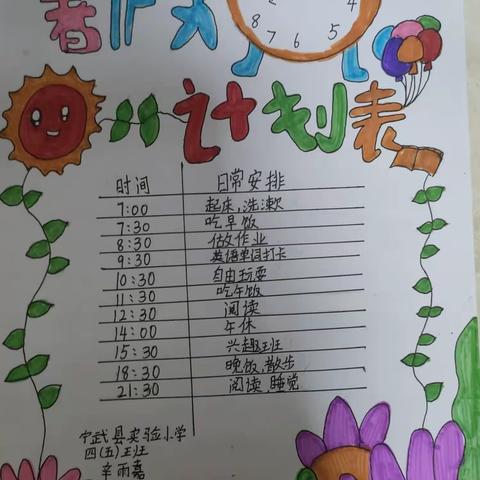 暑假作息
4
8 5
7 6
计划表
时间 日常安排
7:00 起床,洗漱
7:30 吃早饭
8:30 做作业
9:30 英语单词打卡
10:30 自由玩耍
11:30 吃午饭
12:30 阅读
14:00 午休
15:30 兴趣班
18:30 晚饭,散步
21:30 阅读,睡觉
宁武县实验小学
四(五)班
辛雨嘉